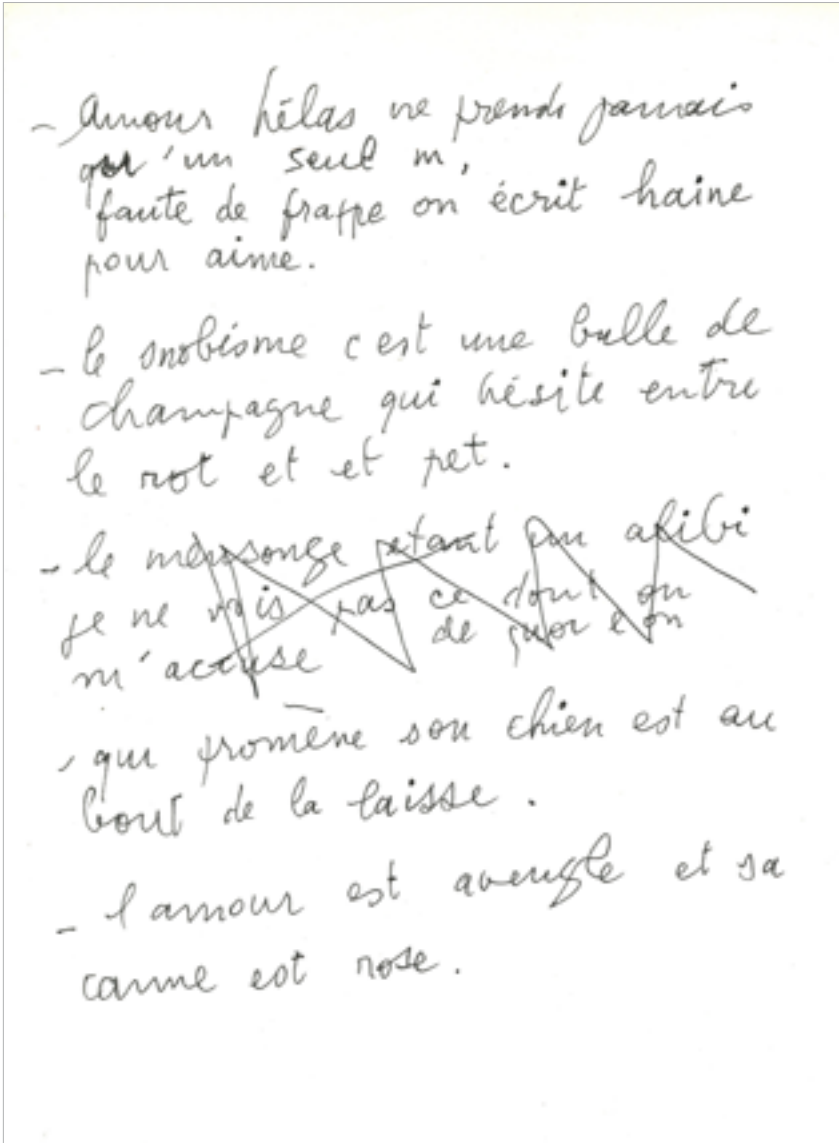 - Amour hélas ne prend jamais
qu'un seul m,
faute de frappe on écrit haine
pour aime.
- le snobisme c est une bulle de
champagne qui hésite entre
le rot et et pet.
- le mensonge etant un alibi
je ne vois pas ce dont on
m'accuse de quoi on
- qui promène son chien est au
bout de la laisse.
- l amour est aveugle et sa
canne est rose.